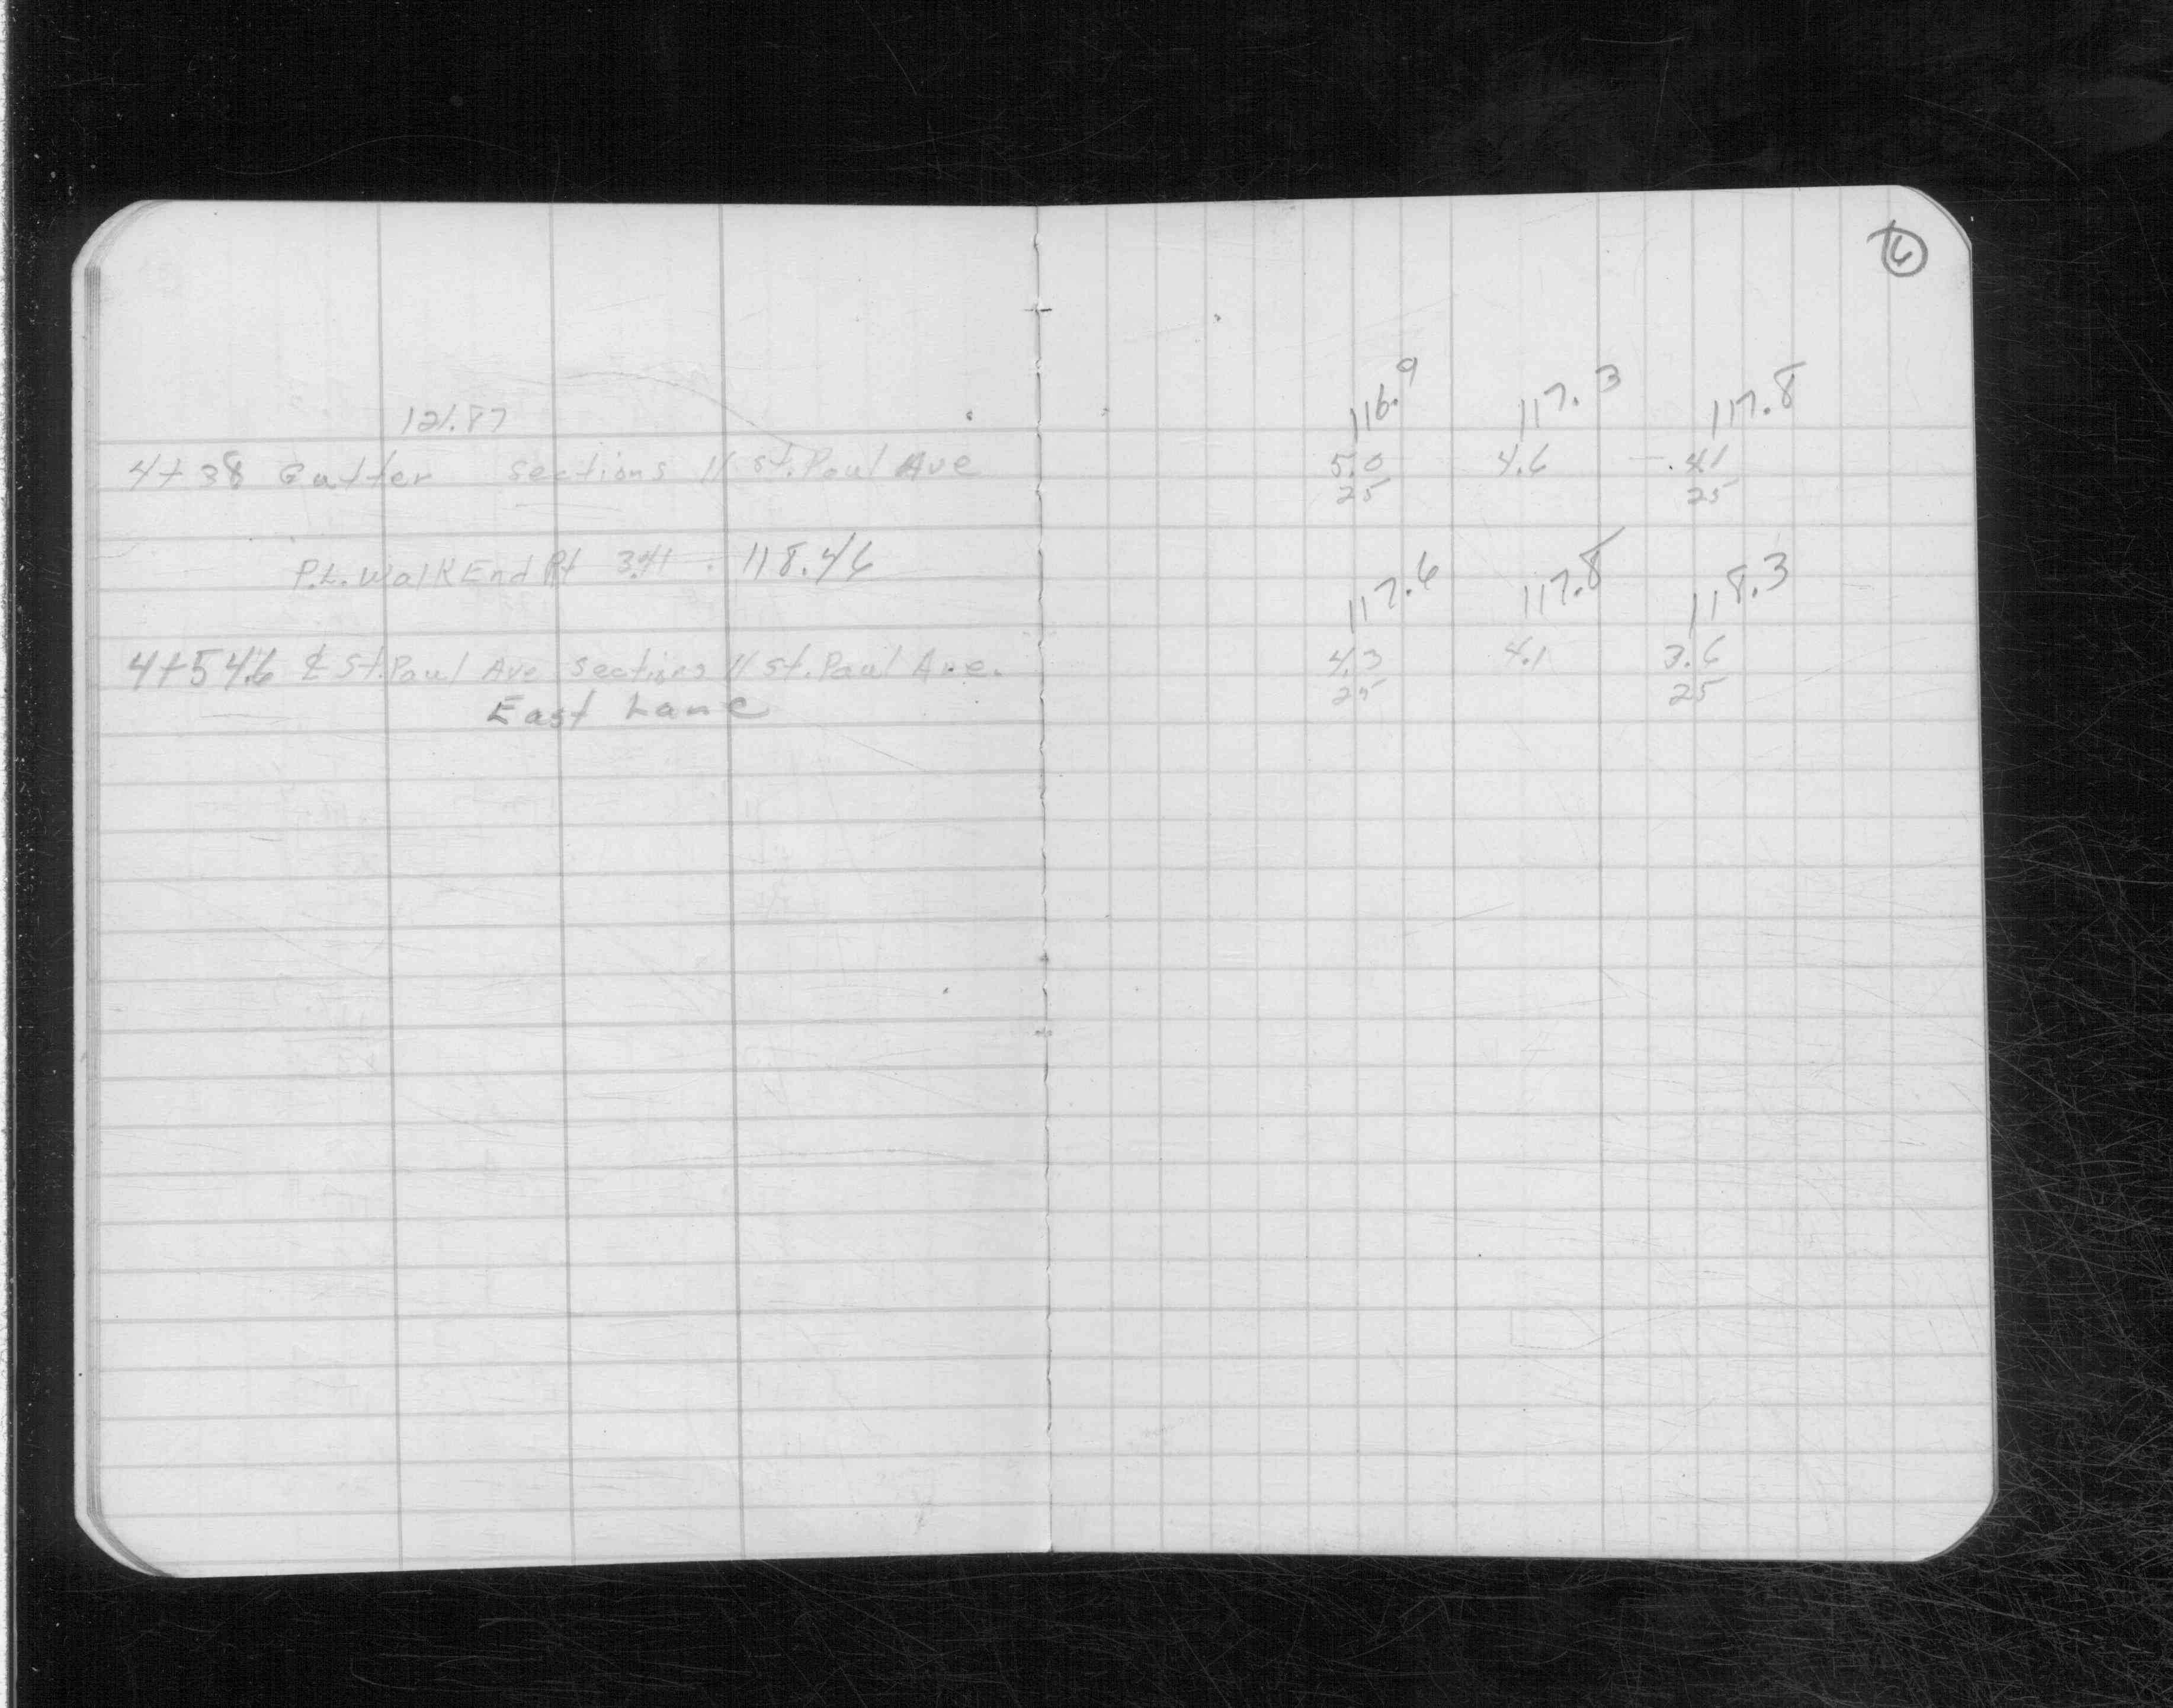 121.87
4+38 Gutter sections // St. Paul Ave
P.L. Walk End Pt 3.41 118.46
4+54.6 ℄ St. Paul Ave sections // St. Paul Ave.
East Lane
6
116.9 117.3 117.8
5.0 4.6 4.1
25 25
117.6 117.8 118.3
4.3 4.1 3.6
25 25